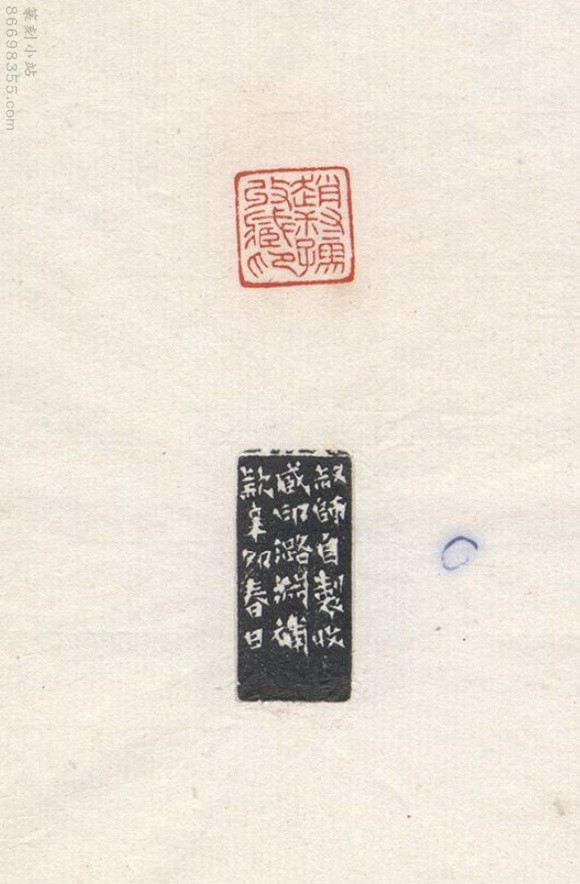 篆刻小站
86698355.com
趙叔孺
收臧印
叔師自製收
臧印潞淵補
款辛卯春日